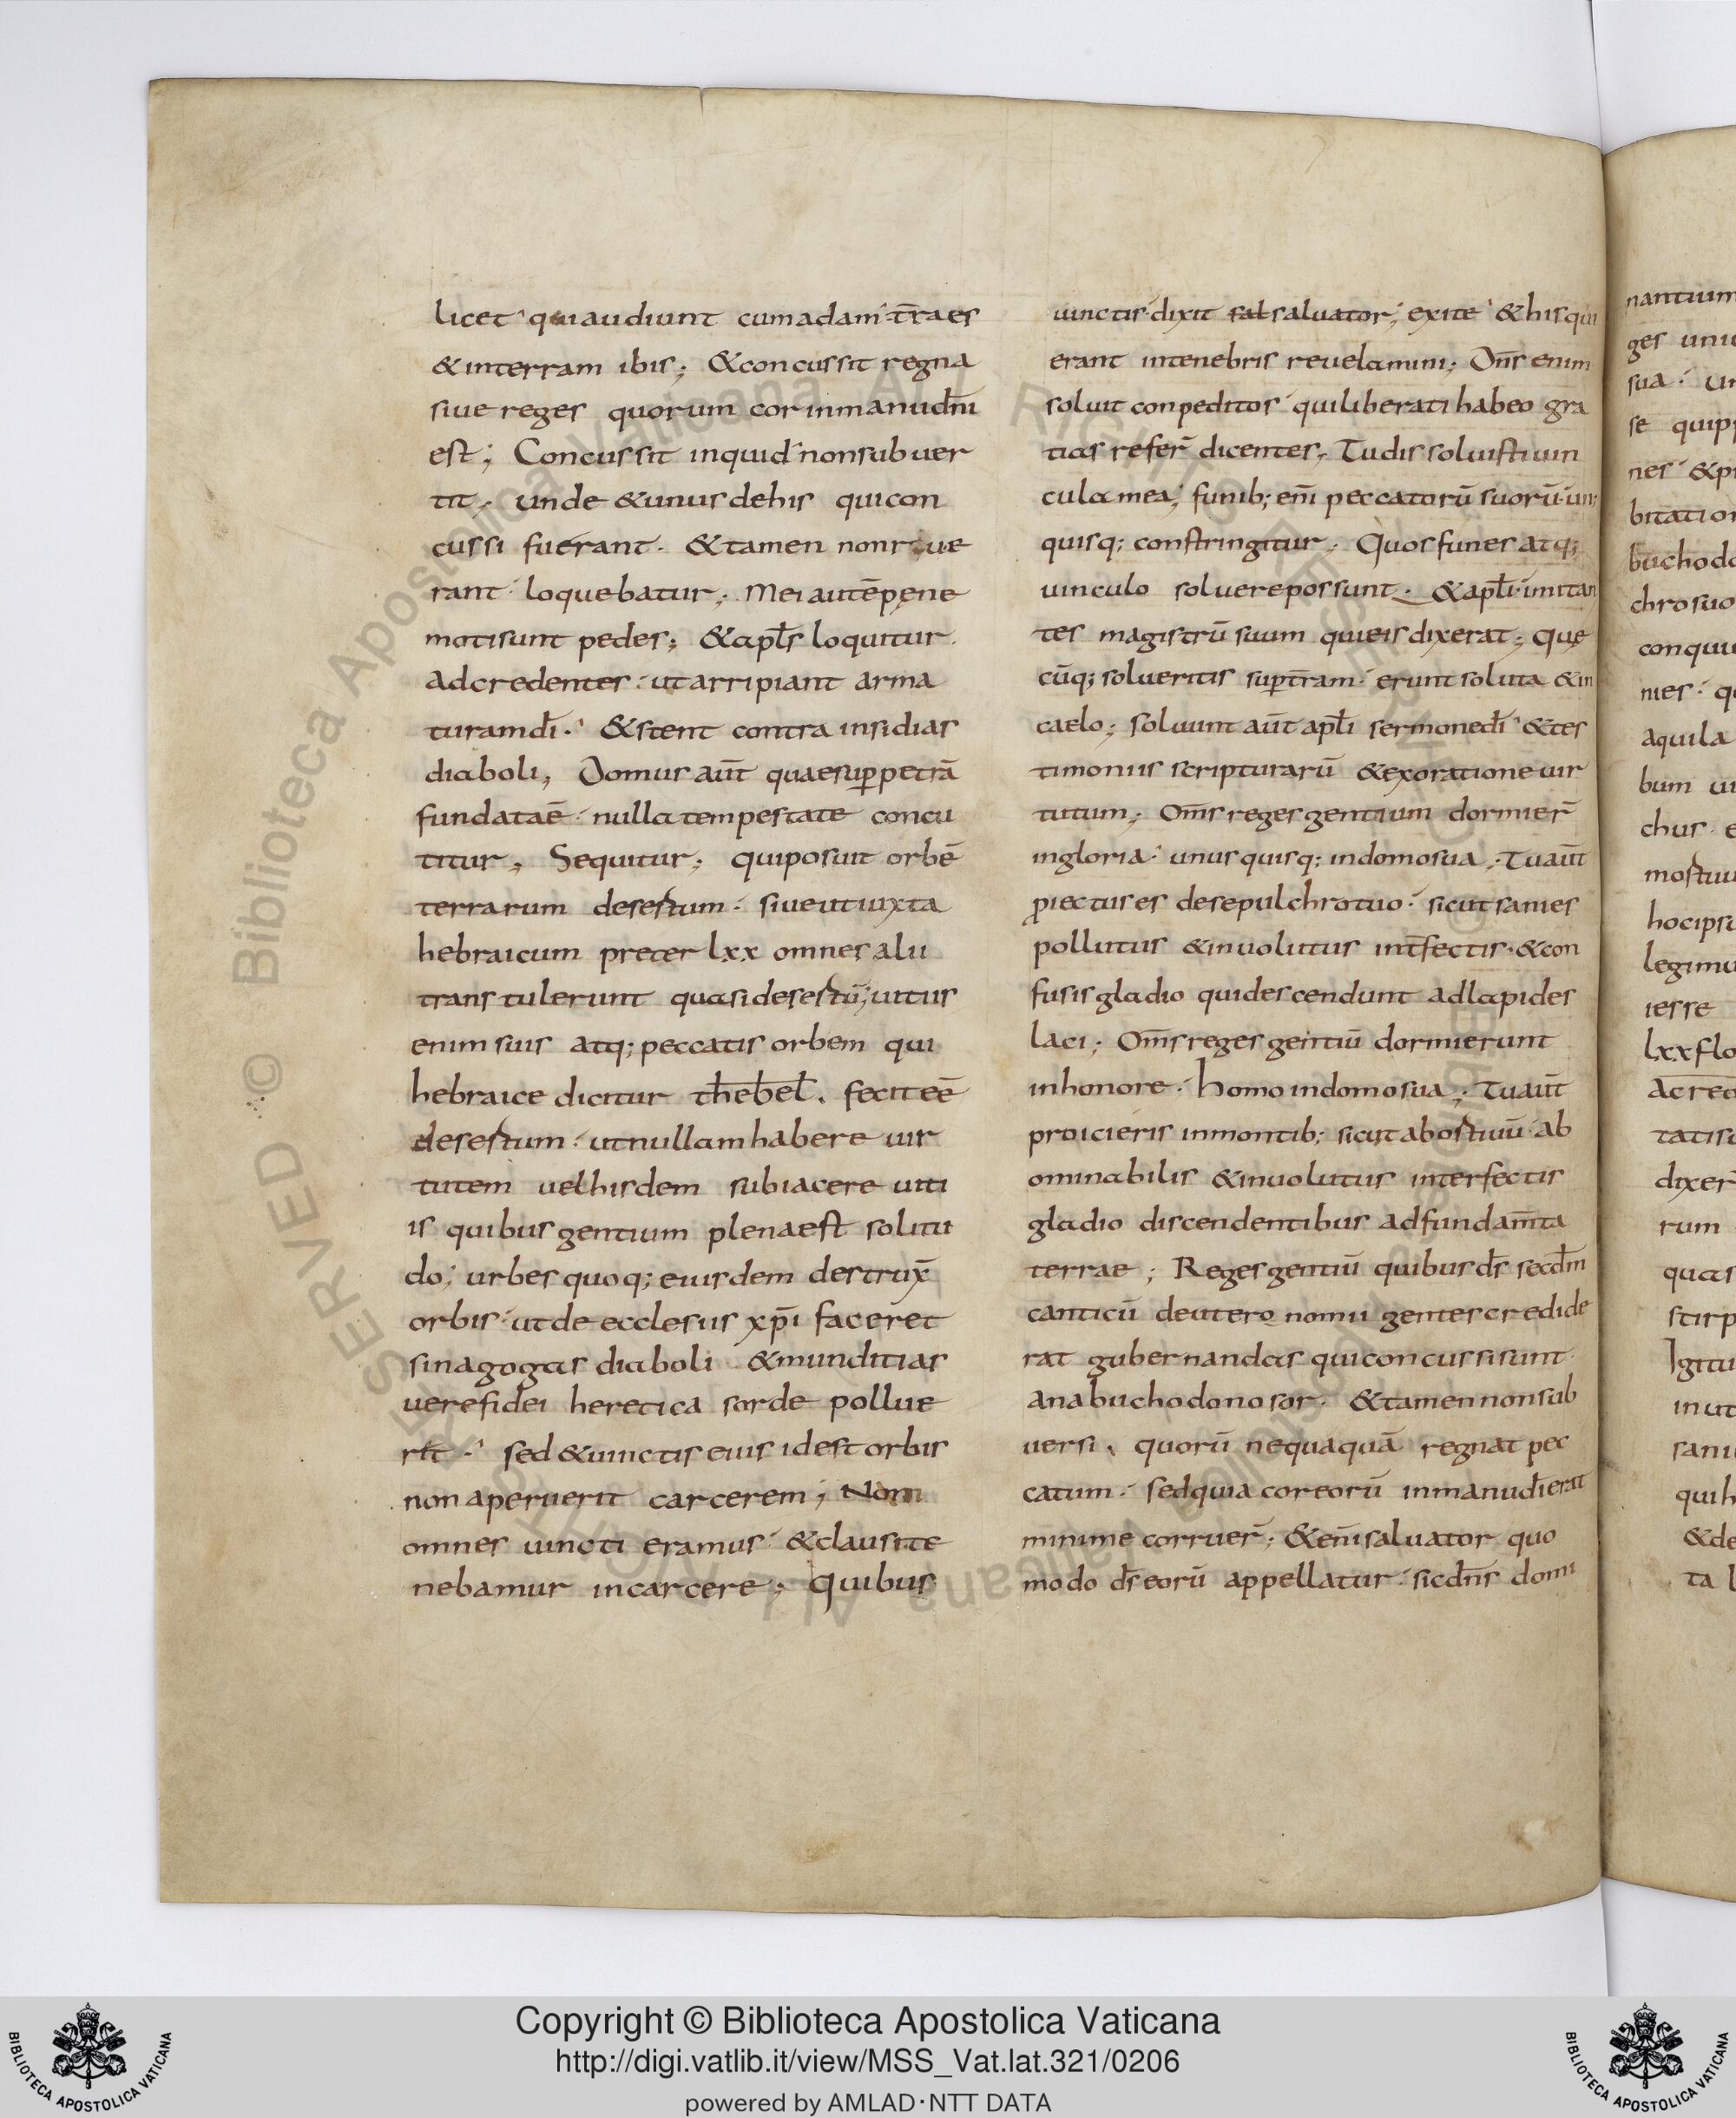 licet quiaudiunt cumadam t̄raes
&interram ibis; &concussit regna
siue reges quorum corinmanudn̄i
est; Concussit inquid nonsubuer
tit. unde &unus dehis quicon
cussi fuerant. &tamen non
rant loquebatur; Mei autēpęne
motisunt pedes; &apl̄s loquitur.
adcredentes ut arripiant arma
turamdī. &stent contra insidias
diaboli, Domus aūt quaesuꝑpetrā
fundataē nulla tempestate concu
titur, Sequitur; quiposuit orbē
terrarum desertum. siue utiuxta
hebraicum preter lxx omnes alii
transtulerunt quasi desertū; uitus
enim suis atq; peccatis orbem qui
hebraice dicitur thebel. fecit eē
desertum utnullamhabere uir
tutem uelhisdem subiacere uiti
is quibus gentium plenaest solitu
do; urbes quoq; eiusdem destrux̄
orbis utde ecclesiis xp̄i faceret
sinagogas diaboli &munditias
verefidei heretica sorde pollue
rit. sed &uinctis eius idest orbis
non aperuerit carcerem; Non
omnes uincti eramus &clausite
nebamur incarcere; Quibus
uinctis dixit saluator; exite &hisqui
erant intenebris reuelamini; Dn̄s enim
soluit conpeditos quiliberati habeo gra
tias referr̄ dicentes. Tudissoluisti uin
cula mea; funib; eni̅ peccatorū suorū un;
quisq; constringitur. Quos funes atq;
uinculo soluere possunt. &apl̄i imitan
tes magistrū suum quieis dixerat; Quę
cūq; solueritis supt̄ram erunt soluta &in
caelo; Soluunt aūt apl̄i sermonedī &tes
timoniis scripturarū &exoratione uir
tutum; Om̄s reges gentium dormier̄
ingloria unusquisq; indomosua. Tuaūt
ꝓiectus es desepulchrotuo sicut sanies
pollutus &inuolutus int̄fectis &con
fusis gladio quidescendunt adlapides
laci; Om̄s reges gentiū dormierunt
inhonore. homo indomosua; Tuaūt
proicieris inmontib; sicut abostiuū ab
ominabilis &inuolutus interfectis
gladio discendentibus adfundam̄ta
terrae; Reges gentiū quibus ds̄ secdm̄
canticū deutero nomii gentes credide
rat gubernandas quiconcussisunt
anabuchodonosor. &tamennonsub
uersi, quorū nequaquā regnat pec
catum. sedquia coreorū inmanudīerat
minime corruer̄; &eni̅saluator quo
modo ds̄eorū appellatur sicdn̄s domi
nantium
ges uniu
sua
se quip
nes &p
bitation
buchodo
chrosuo
conqui
mes
aquila
bum
chus
mostuu
hocipsu
legimu
iesse
lxxflo
Acred
tatis
dixer
rum
quas
stirp
Igitu
inut
sani
quih
&de
ta
© Biblioteca Apostolica Vaticana ALL RIGHTS RESERVED
Copyright © Biblioteca Apostolica Vaticana
http://digi.vatlib.it/view/MSS_Vat.lat.321/0206
powered by AMLAD·NTT DATA
BIBLIOTECA APOSTOLICA VATICANA
BIBLIOTECA APOSTOLICA VATICANA